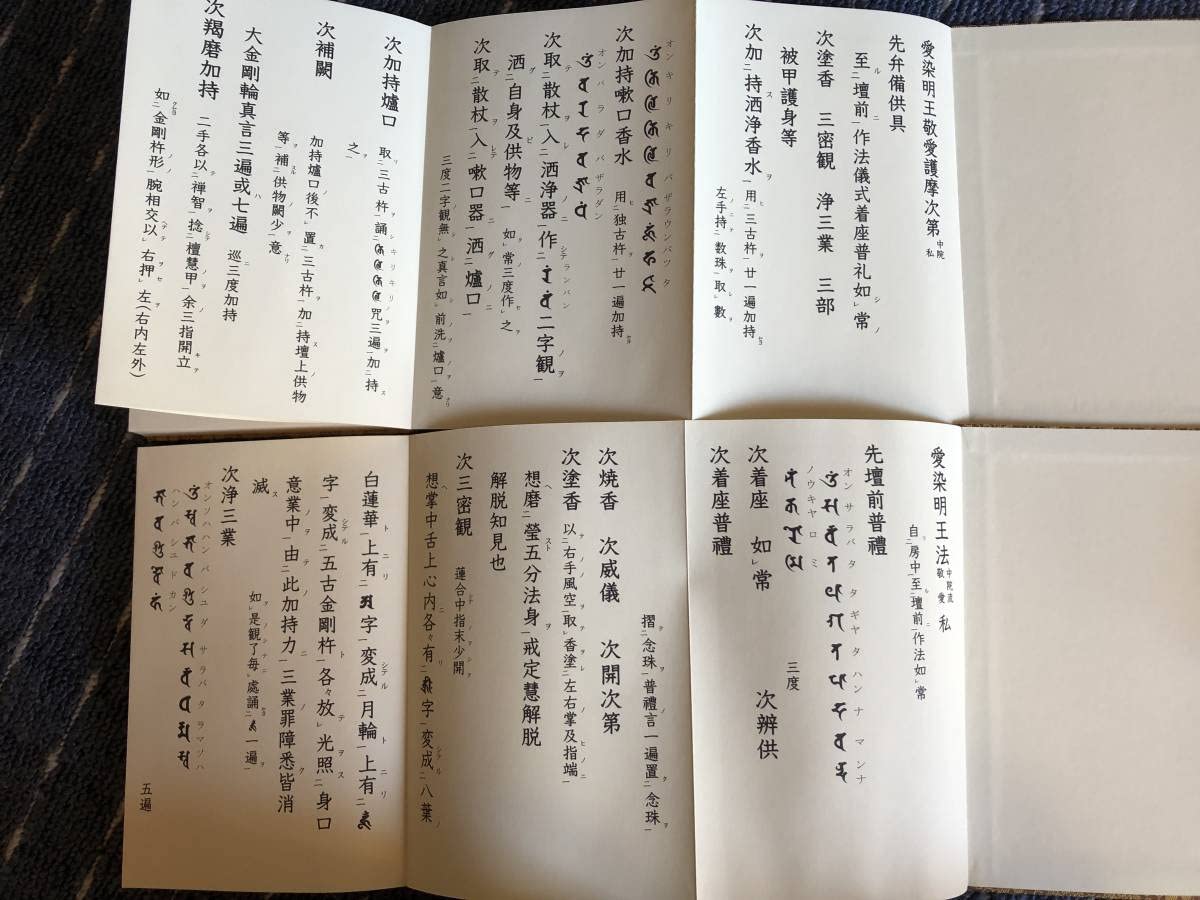 愛染明王敬愛護摩次第 中院 私
先弁備供具
至二壇前一作法儀式着座普礼如レ常
次塗香 三密観 浄三業 三部
被甲護身等
次加二持洒浄香水一 用二三古杵一廿一遍加持
左手持二数珠一取レ數
オンキリキリバザラウンバッタ
次加持嗽口香水 用二独古杵一廿一遍加持
オンバラダバザラダン
次取二散杖一入二洒浄器一作二 二字観一
洒二自身及供物等一 如レ常三度作レ之
次取二散杖一入二嗽口器一洒二爐口一
三度二字観無レ之真言如レ前洗二爐口一意
次加持爐口 取二三古杵一誦二 キリキリ 咒三遍一加二持之一
次補闕 加持爐口後不レ置二三古杵一加二持壇上供物等一補二供物闕少一意
大金剛輪真言三遍或七遍 巡三度加持
次羯磨加持 二手各以二禅智一捻二檀慧甲一余三指開立
如二金剛杵形一腕相交以レ右押レ左(右内左外)
愛染明王法 中院流 敬愛 私
自二房中一至二壇前一作法如レ常
先壇前普禮
オンサラバタタギャタハンナマンナ
ノウキャロミ 三度
次着座 如レ常 次辨供
次着座普禮
摺二念珠一普禮言一遍置二念珠一
次焼香 次威儀 次開次第
次塗香 以二右手風空一取レ香塗二左右掌及指端一
想磨二瑩五分法身一戒定慧解脱
解脱知見也
次三密観 蓮合中指末少開
想掌中舌上心内各々有二 字一変成二八葉
白蓮華一上有二 字一変成二月輪一上有二
字一変成二五古金剛杵一各々放レ光照二身口
意業中一由二此加持力一三業罪障悉皆消
滅 如レ是観了毎レ處誦二 一遍一
次浄三業
オンソハハンバシュダサラバタラマソハ
ハンバシュドカン 五遍